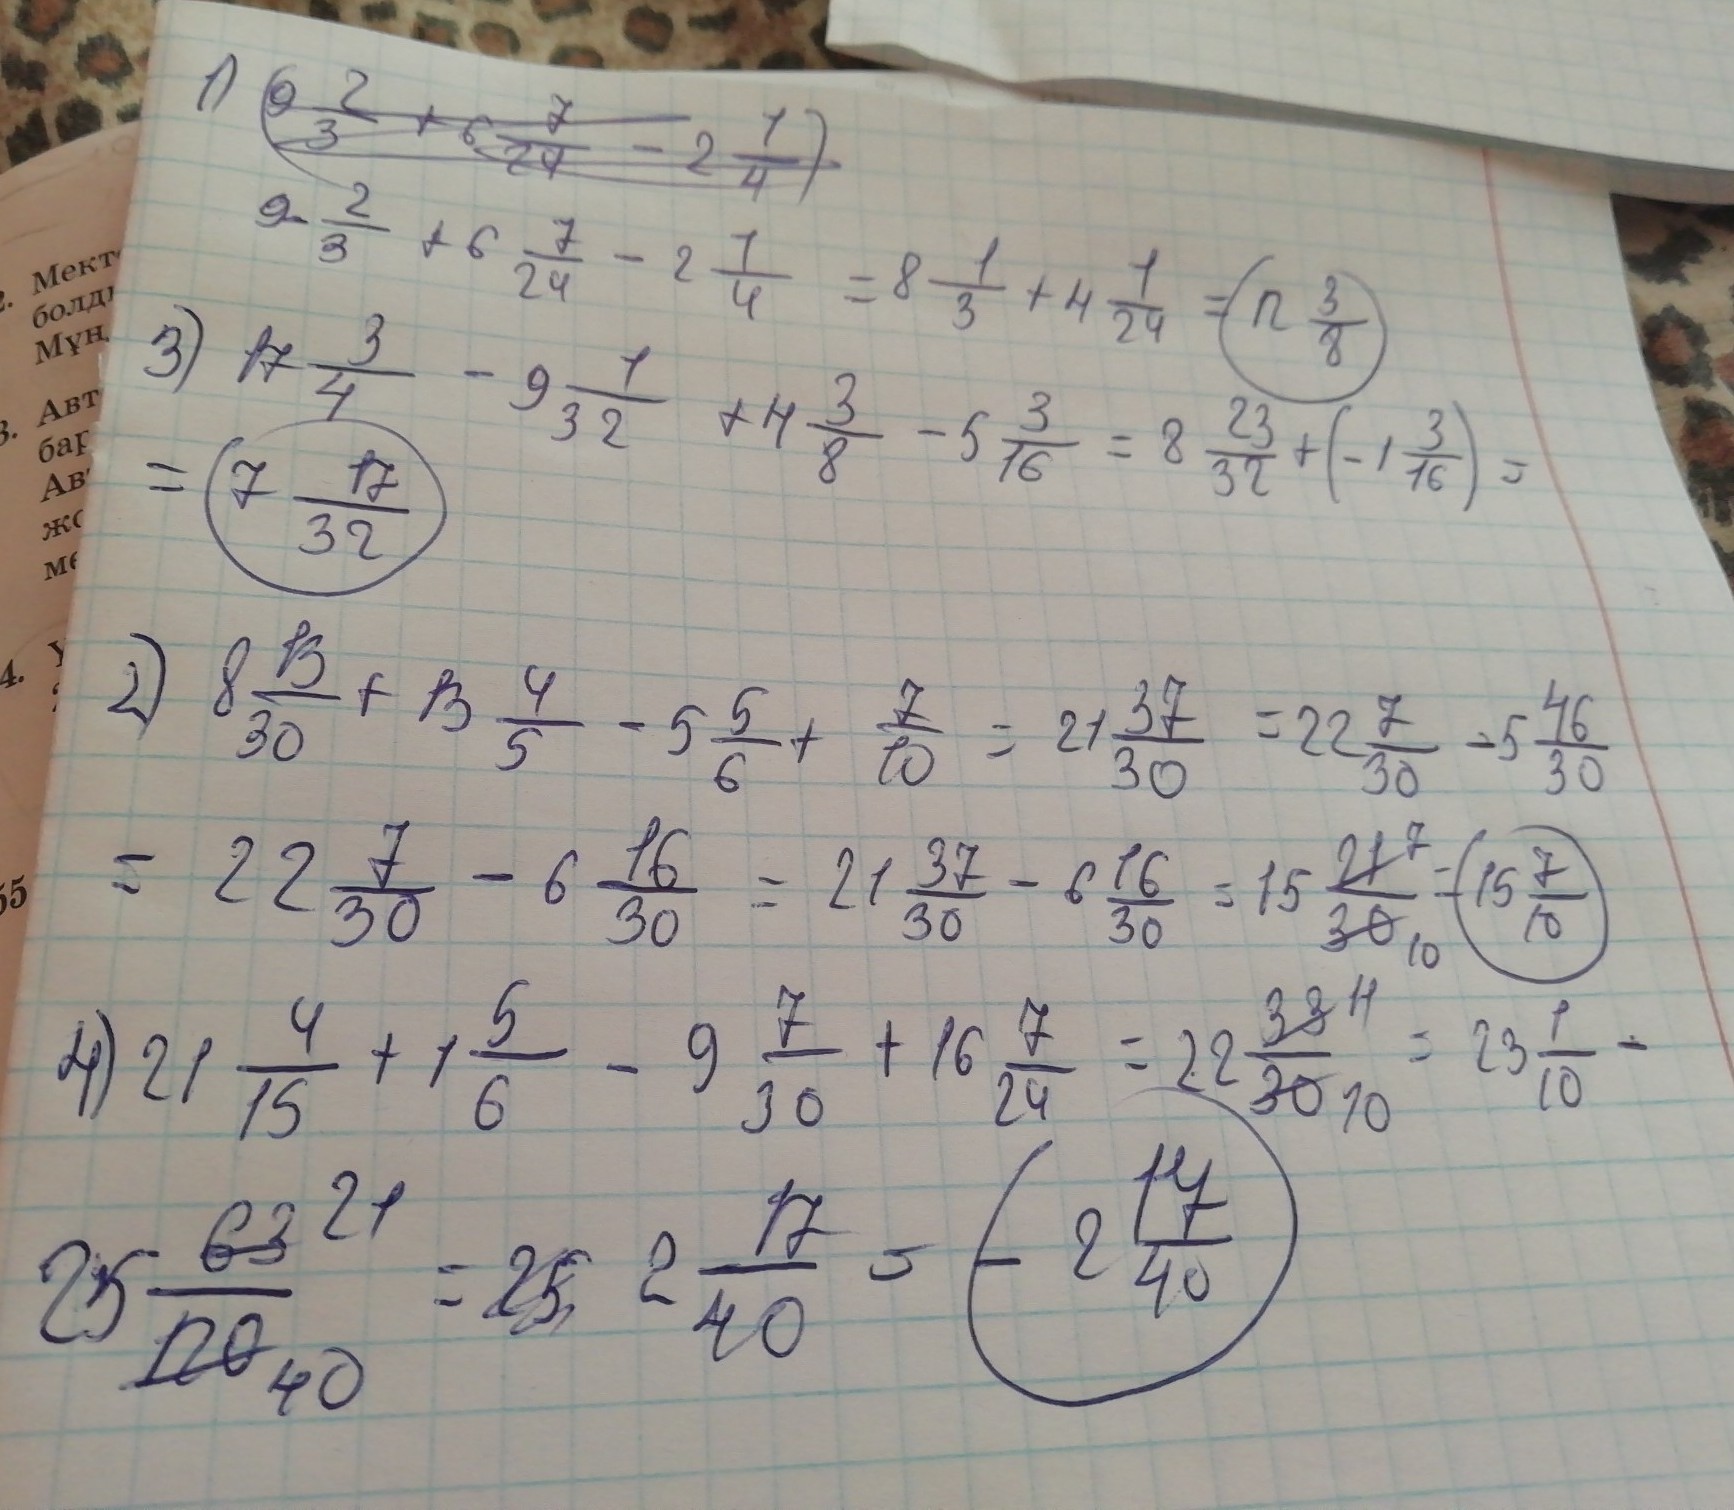 1) (9 2/3 + 6 7/24 - 2 1/4)
9 - 2/3 + 6 7/24 - 2 1/4 = 8 1/3 + 4 1/24 = 12 3/8
3) 17 3/4 - 9 1/32 + 4 3/8 - 5 3/16 = 8 23/32 + (-1 3/16) =
= 7 17/32
2) 8 13/30 + 13 4/5 - 5 5/6 + 7/10 = 21 37/30 = 22 7/30 - 5 46/30
= 22 7/30 - 6 16/30 = 21 37/30 - 6 16/30 = 15 21 7/30 10 = 15 7/10
4) 21 4/15 + 1 5/6 - 9 7/30 + 16 7/24 = 22 33 11/30 10 = 23 1/10 -
25 63 21/120 40 = 2 17/40 = - 2 17/40
2. Мект
болд
Мұн
3. Авт
бар
Ав
жо
ме
4.
55